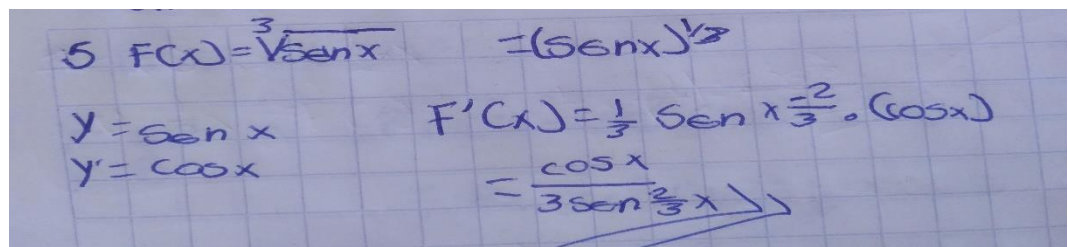 5 F(x) = ∛senx = (senx)^1/3
y = sen x
y' = cosx
F'(x) = 1/3 sen x^-2/3 . (cosx)
= cosx / 3 sen^2/3 x